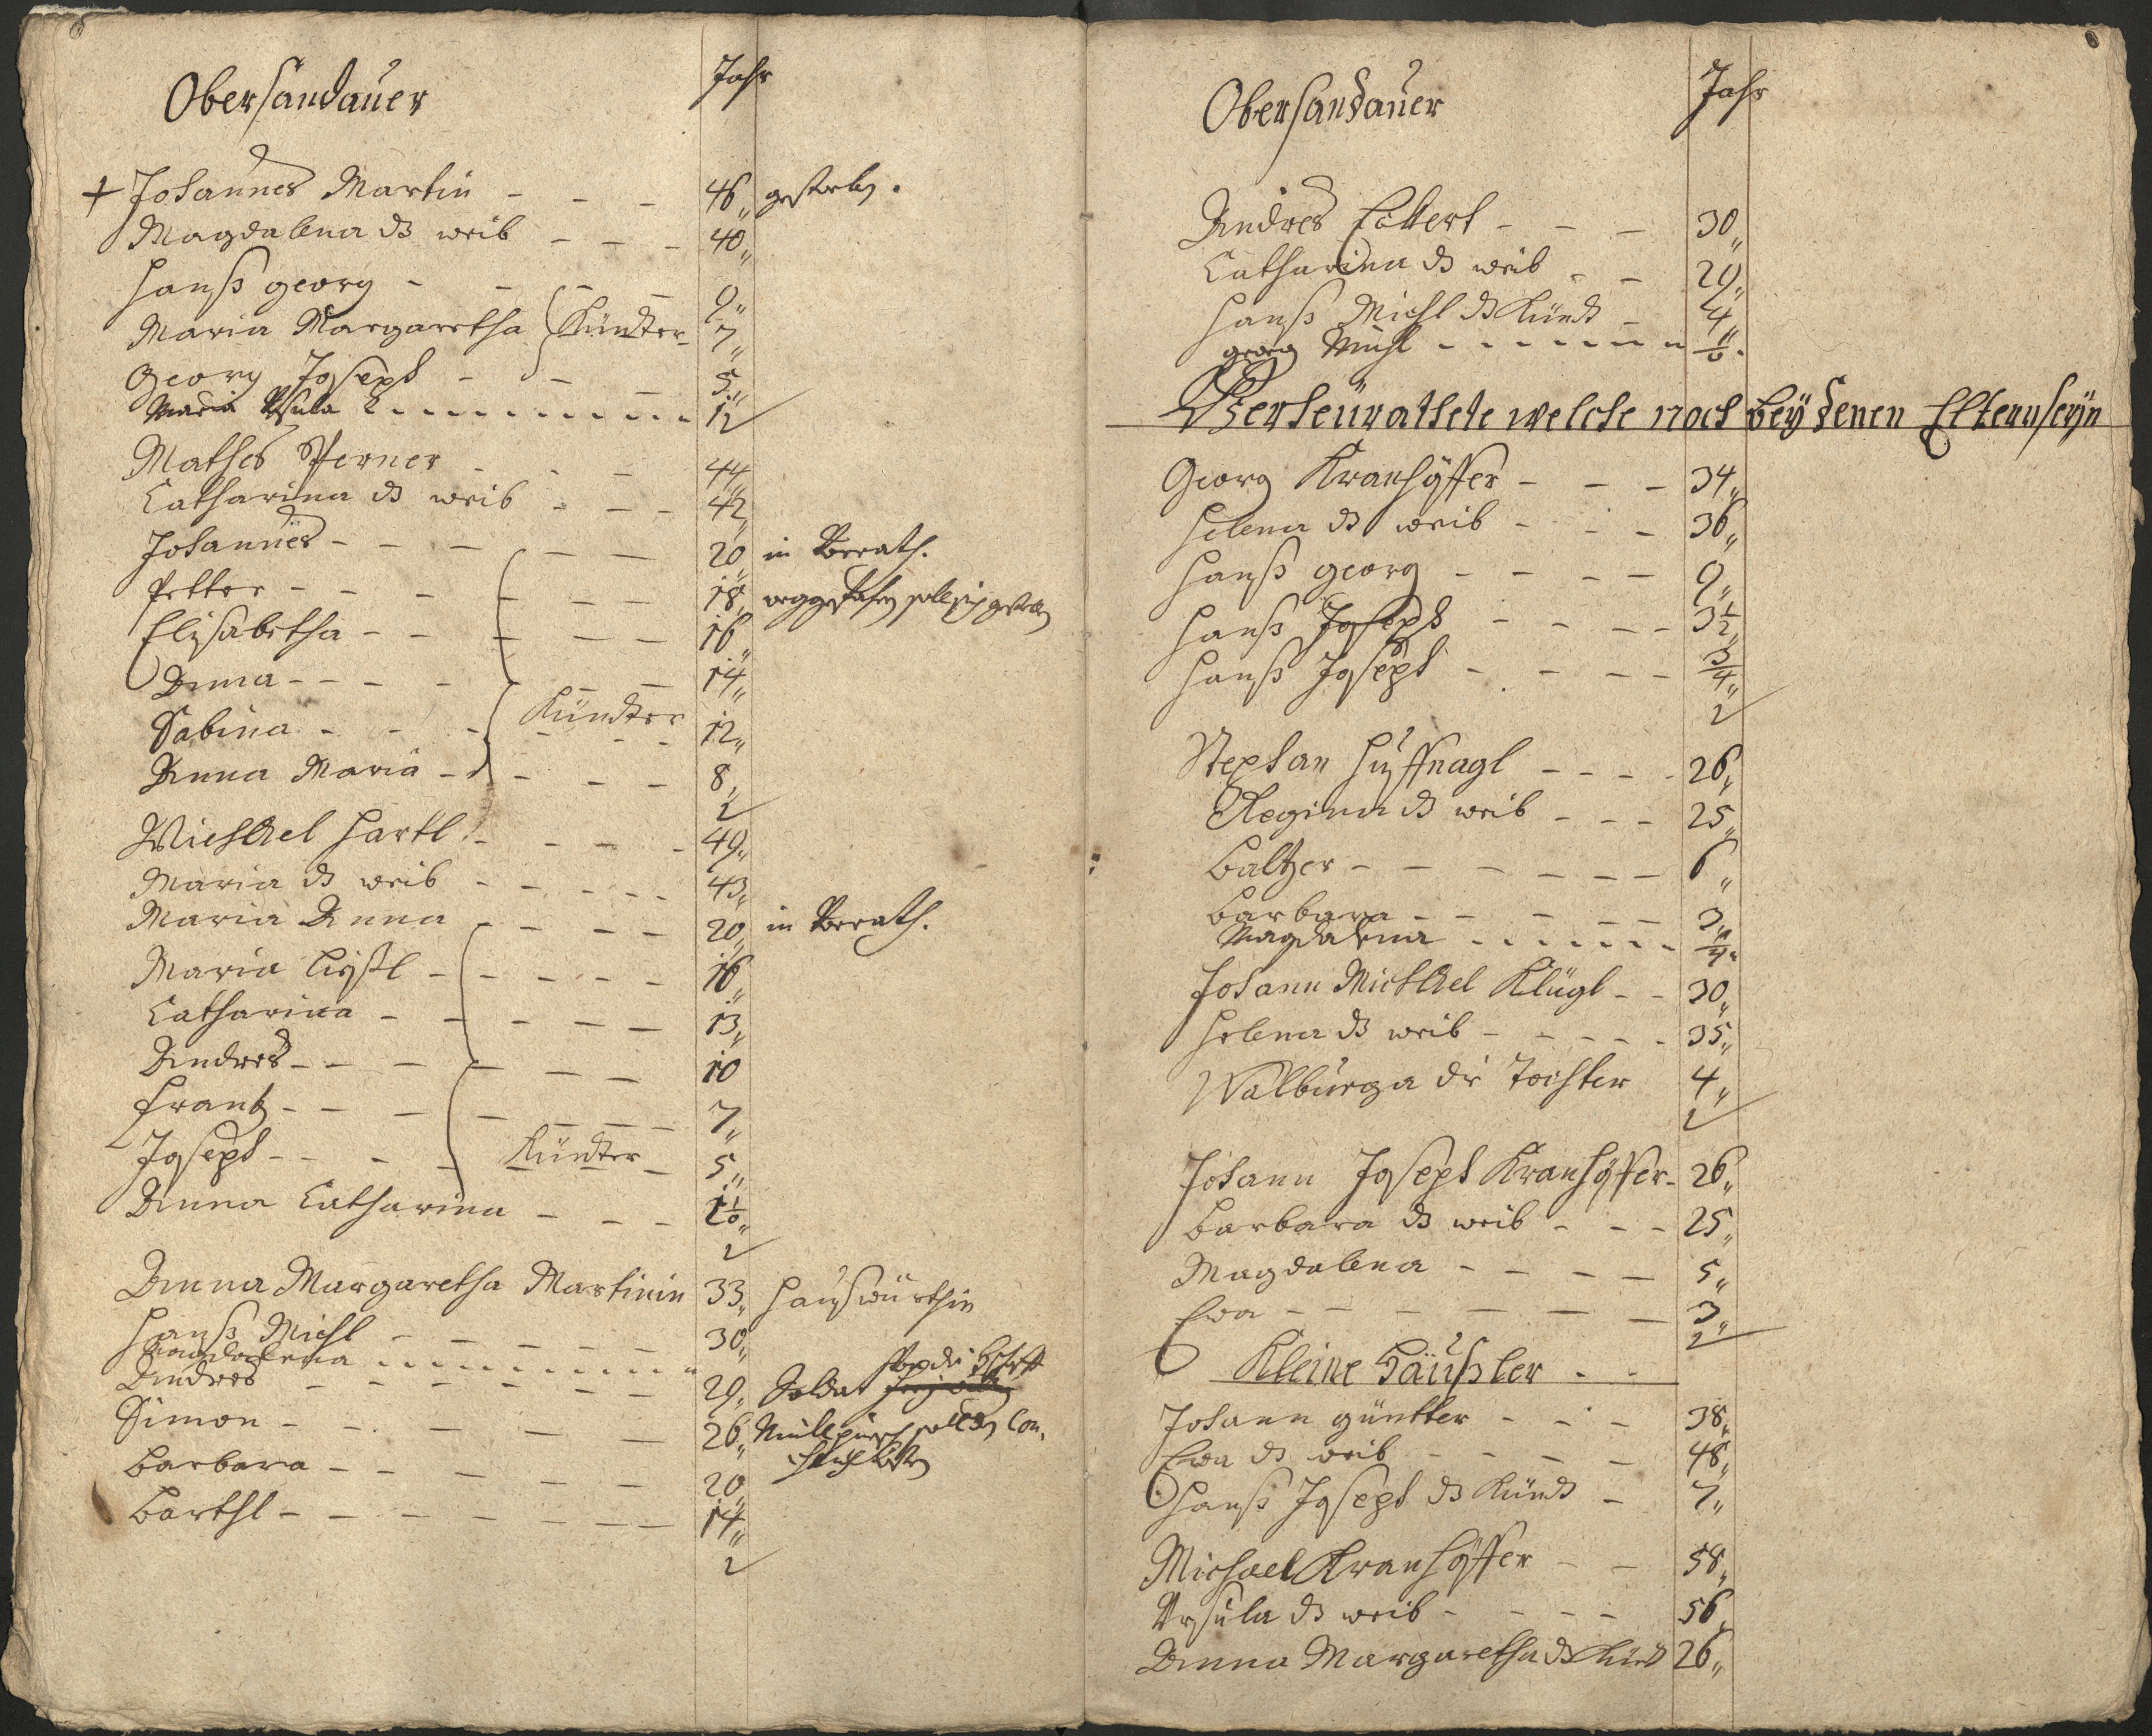 Obersandauer
Jahr
+ Johannes Martin - - - 46 gestorben.
Magdalena ds weib - - - 40
Hanß georg - - - - 9
Maria Margaretha Kündter 7
Georg Joseph - - - 5
Maria Ursula - - - - - 1/2
Mathes Werner - - - 44
Catharina ds weib - - - 42
Johannes - - - - - 20 in Verath.
Petter - - - - - - 18
Elisabetha - - - - - 16
Anna - - - - - - 14
Sabina - - - Kündter 12
Anna Maria - - - - 8
Michael Hartl - - - - 49
Maria ds weib - - - - 43
Maria Anna - - - - 20 in Verath.
Maria Lißl - - - - - 16
Catharina - - - - - 13
Andres - - - - - - 10
Frantz - - - - - - 7
Joseph - - - - Kündter - 5
Anna Catharina - - - 1 1/2
Anna Margaretha Martinin 33 Haußwürthin
Hanß Michl - - - - - 30
Magdalena - - - - -
Andres - - - - - - 29 Soldat
Simon - - - - - - 26
Barbara - - - - - - 20
Barthl - - - - - - 14
Obersandauer
Jahr
Andres Eckert - - - 30
Catharina ds weib - - 29
Hanß Michl ds Kündt - 4
georg Michl - - - - -
Verheürathete welche noch beÿ denen Eltern seÿn
Georg Kranhöffer - - - 34
Helena ds weib - - - 36
Hanß georg - - - - 9
Hanß Joseph - - - - 3 1/2
Hanß Joseph - - - - 3/4
Stephan Huffnagl - - - - 26
Regina ds weib - - - 25
Baltzer - - - - - - 6
Barbara - - - - - 3
Magdalena - - - - - 1/4
Johann Michael Klügl - - 30
Helena ds weib - - - - - 35
Walburga die Tochter 4
Johann Joseph Kranhöffer - 26
Barbara ds weib - - - 25
Magdalena - - - - 5
Eva - - - - - - 3
Kleine Häußler - -
Johann güntter - - - 38
Eva ds weib - - - - 48
Hanß Joseph ds Kündt - 7
Michael Kranhöffer - - 58
Ursula ds weib - - - - 56
Anna Margaretha ds Kündt 26